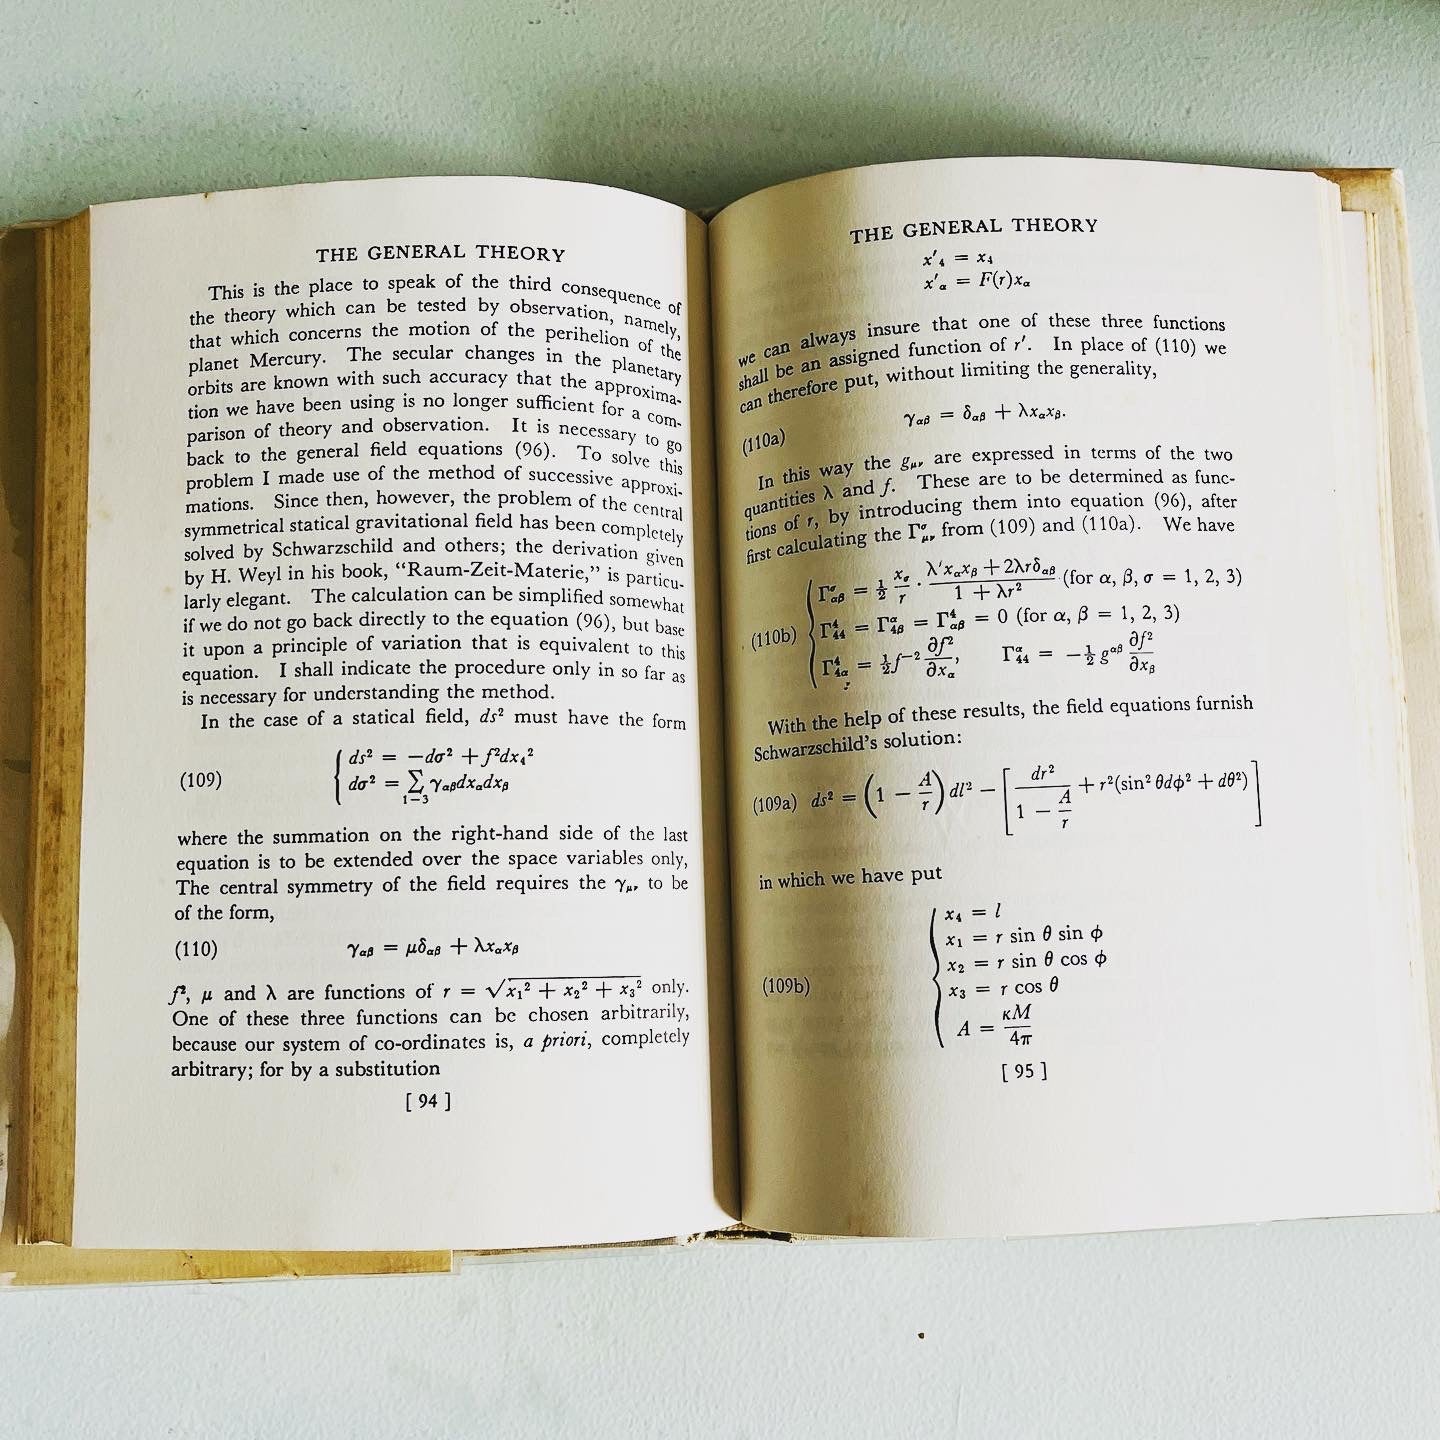 THE GENERAL THEORY
This is the place to speak of the third consequence of
the theory which can be tested by observation, namely,
that which concerns the motion of the perihelion of the
planet Mercury. The secular changes in the planetary
orbits are known with such accuracy that the approxima-
tion we have been using is no longer sufficient for a com-
parison of theory and observation. It is necessary to go
back to the general field equations (96). To solve this
problem I made use of the method of successive approxi-
mations. Since then, however, the problem of the central
symmetrical statical gravitational field has been completely
solved by Schwarzschild and others; the derivation given
by H. Weyl in his book, “Raum-Zeit-Materie,” is particu-
larly elegant. The calculation can be simplified somewhat
if we do not go back directly to the equation (96), but base
it upon a principle of variation that is equivalent to this
equation. I shall indicate the procedure only in so far as
is necessary for understanding the method.
In the case of a statical field, ds² must have the form
ds² = −dσ² + f²dx₄²
(109) dσ² = Σ γαβdxαdxβ
1−3
where the summation on the right-hand side of the last
equation is to be extended over the space variables only,
The central symmetry of the field requires the γμν to be
of the form,
(110) γαβ = μδαβ + λxαxβ
f², μ and λ are functions of r = √x₁² + x₂² + x₃² only.
One of these three functions can be chosen arbitrarily,
because our system of co-ordinates is, a priori, completely
arbitrary; for by a substitution
[ 94 ]
THE GENERAL THEORY
x′₄ = x₄
x′α = F(r)xα
we can always insure that one of these three functions
shall be an assigned function of r′. In place of (110) we
can therefore put, without limiting the generality,
(110a) γαβ = δαβ + λxαxβ.
In this way the gμν are expressed in terms of the two
quantities λ and f. These are to be determined as func-
tions of r, by introducing them into equation (96), after
first calculating the Γσμν from (109) and (110a). We have
Γσαβ = ½ xσ/r · λ′xαxβ + 2λrδαβ / 1 + λr² (for α, β, σ = 1, 2, 3)
(110b) Γ⁴₄₄ = Γα₄β = Γ⁴αβ = 0 (for α, β = 1, 2, 3)
Γ⁴₄α = ½f⁻² ∂f²/∂xα, Γα₄₄ = −½gαβ ∂f²/∂xβ
With the help of these results, the field equations furnish
Schwarzschild’s solution:
(109a) ds² = (1 − A/r) dl² − [dr² / 1 − A/r + r²(sin² θdφ² + dθ²)]
in which we have put
x₄ = l
x₁ = r sin θ sin φ
x₂ = r sin θ cos φ
(109b) x₃ = r cos θ
A = κM/4π
[ 95 ]